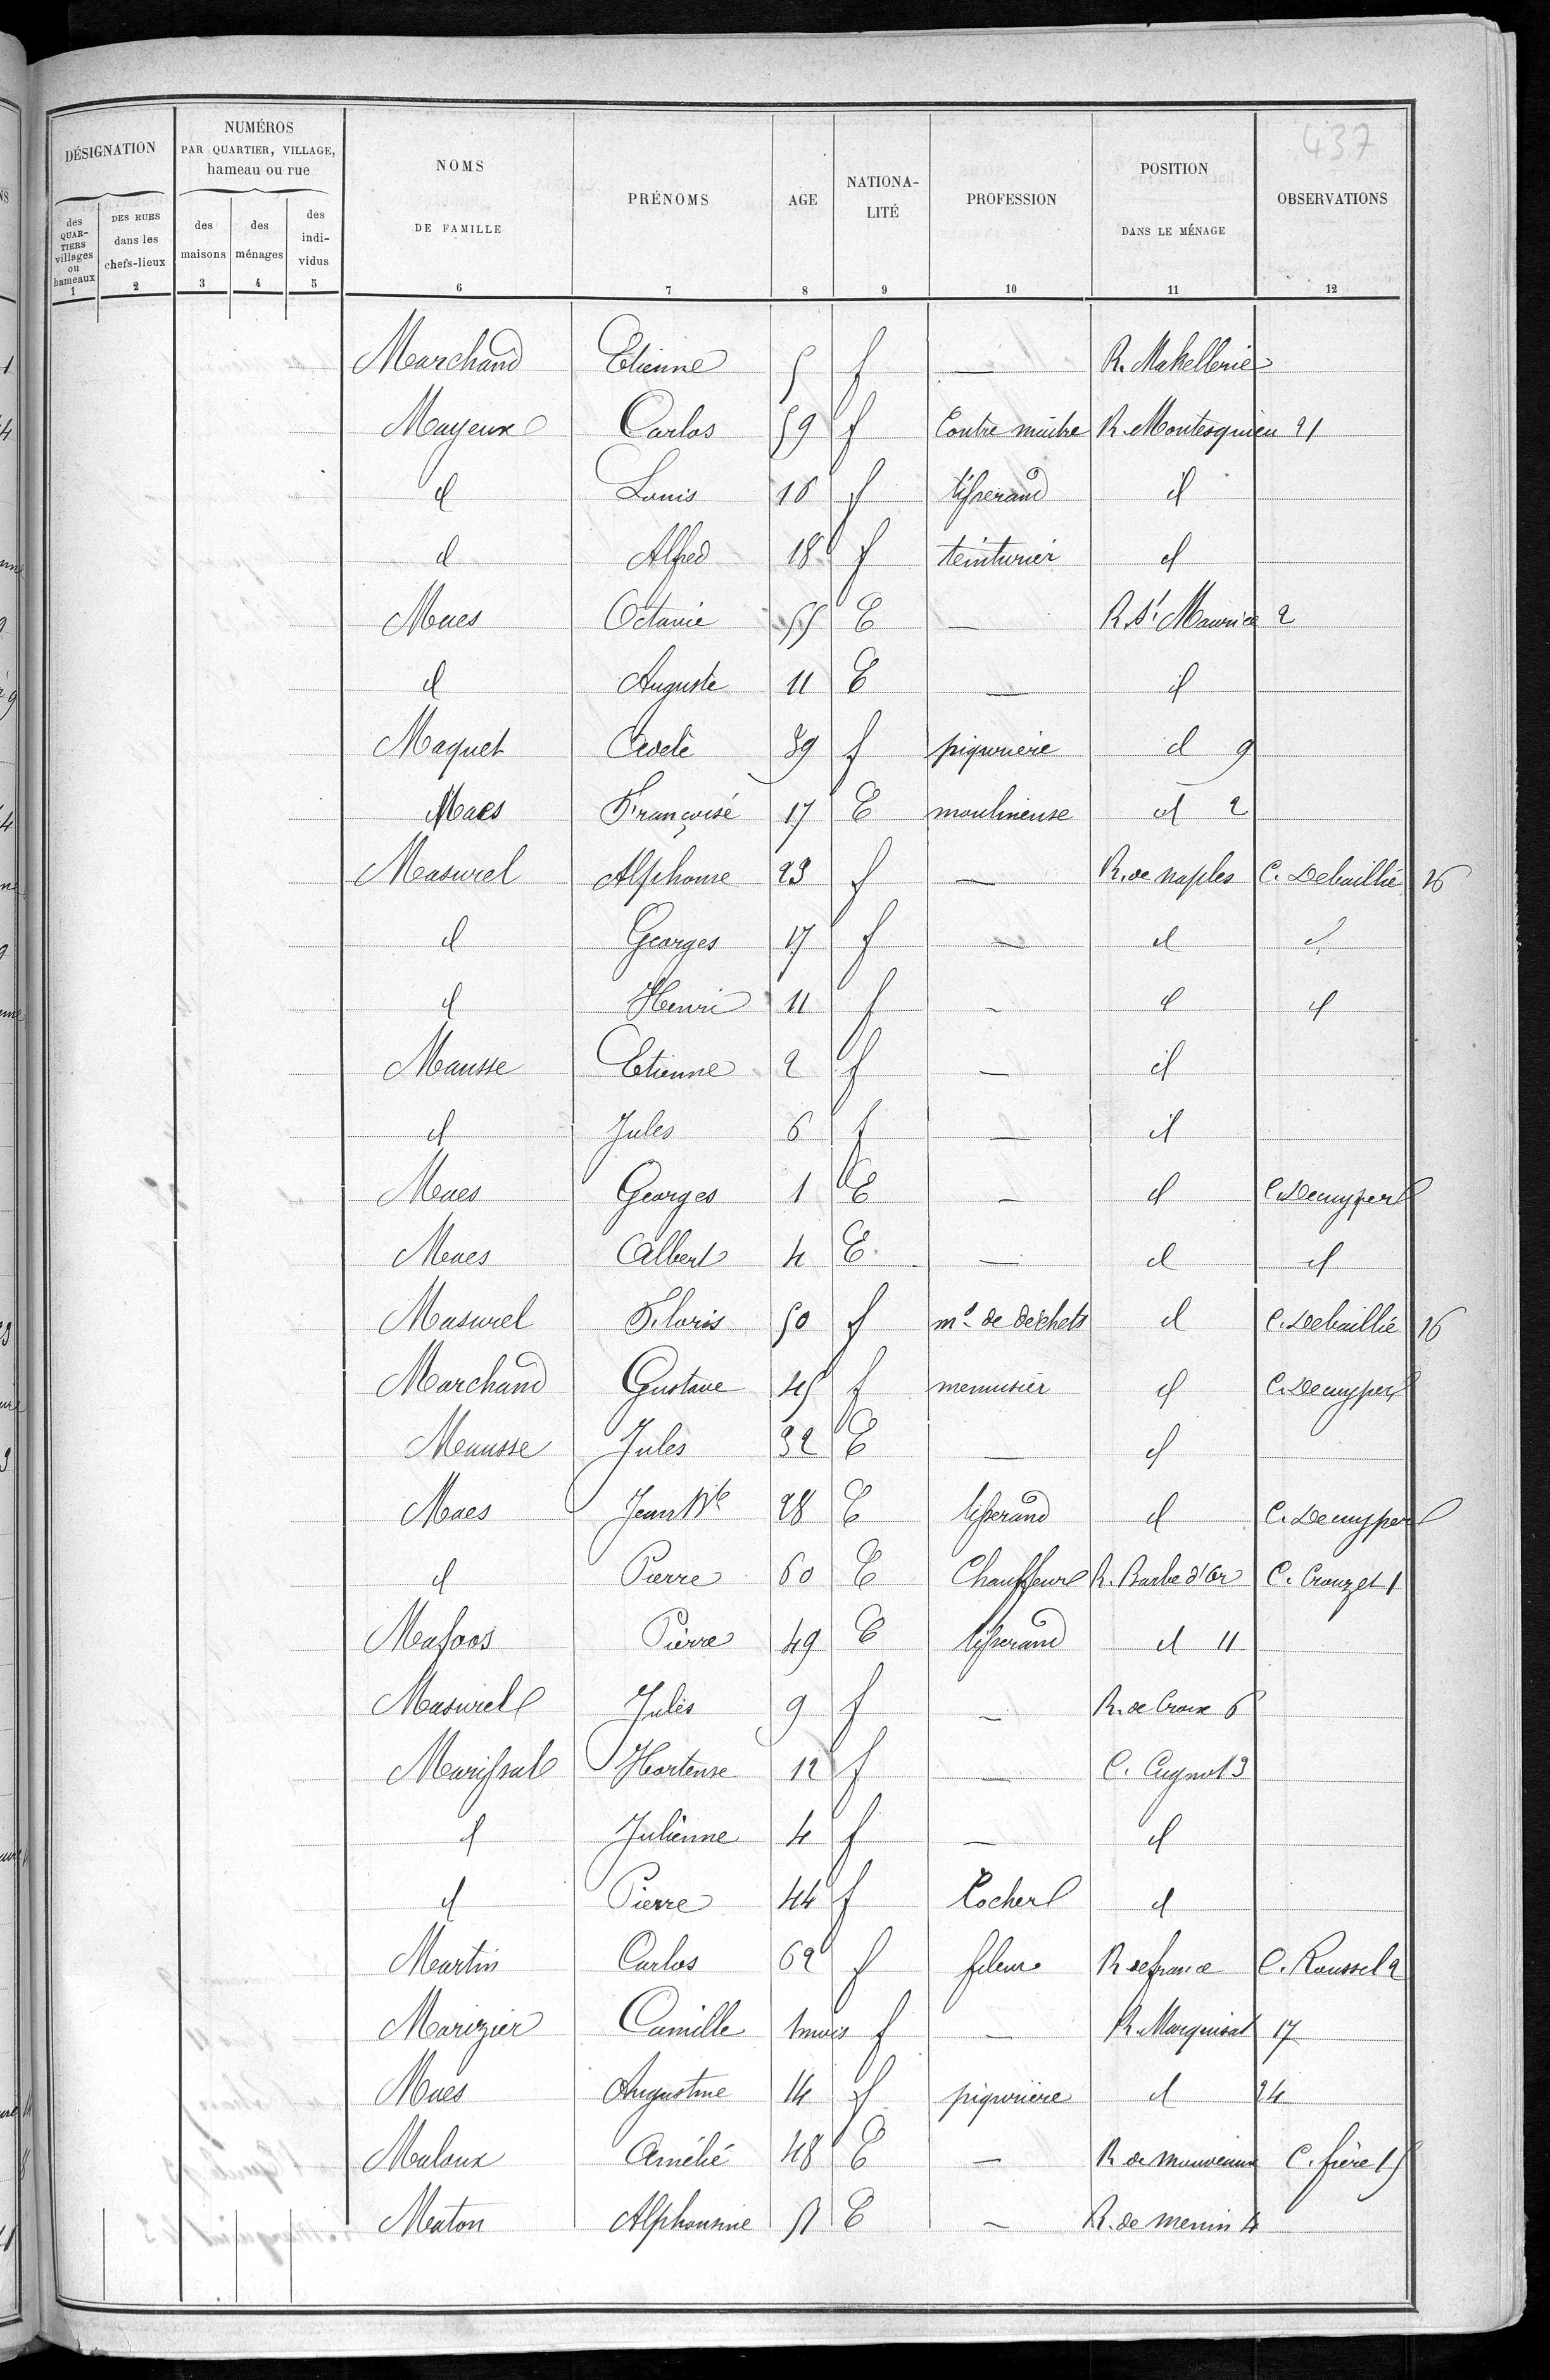 437
DÉSIGNATION
NUMÉROS PAR QUARTIER, VILLAGE, hameau ou rue
NOMS DE FAMILLE
PRÉNOMS
AGE
NATIONA-LITÉ
PROFESSION
POSITION DANS LE MÉNAGE
OBSERVATIONS
des QUARTIERS villages ou hameaux
DES RUES dans les chefs-lieux
des maisons
des ménages
des indi-vidus
1 2 3 4 5 6 7 8 9 10 11 12
Marchand Etienne 5 f — R. Makellerie
Mayeux Carlos 59 f Contre maitre R. Montesquieu 21
d Louis 16 f tisserand d
d Alfred 18 f teinturier d
Maes Octavie 55 E — R. St Maurice 2
d Auguste 11 E — d
Maquet Adele 39 f piqurière d 9
Maes Françoise 17 E moulineuse d 2
Masurel Alphonse 23 f — R. de naples C. Debaillie 26
d Georges 17 f — d d
d Henri 11 f — d d
Mausse Etienne 2 f — d
d Jules 6 f — d
Maes Georges 1 E — d C. Demyper
Maes Albert 4 E — d d
Masurel Floris 50 f md de déchets d C. Debaillie 26
Marchand Gustave 45 f menuisier d C. Demyper
Mausse Jules 32 E — d
Maes Jean Bte 28 E tisserand d C. Demyper
d Pierre 60 E Chauffeur R. Barbe d'Or C. Crouzet 1
Pierre 49 E tisserand d 11
Masurel Jules 9 f — R. de Croix 6
Marissal Hortense 12 f — C. Cugnot 3
d Julienne 4 f — d
d Pierre 44 f Cocher d
Martin Carlos 62 f fileur R de france C. Roussel 2
Marizier Camille 1 mois f — R. Marquisat 17
Maes Augustine 14 f piqurière d 24
Malaux Amélie 48 E — R de mouveaux C. frère 15
Maton Alphonsine 51 E — R. de menin 4